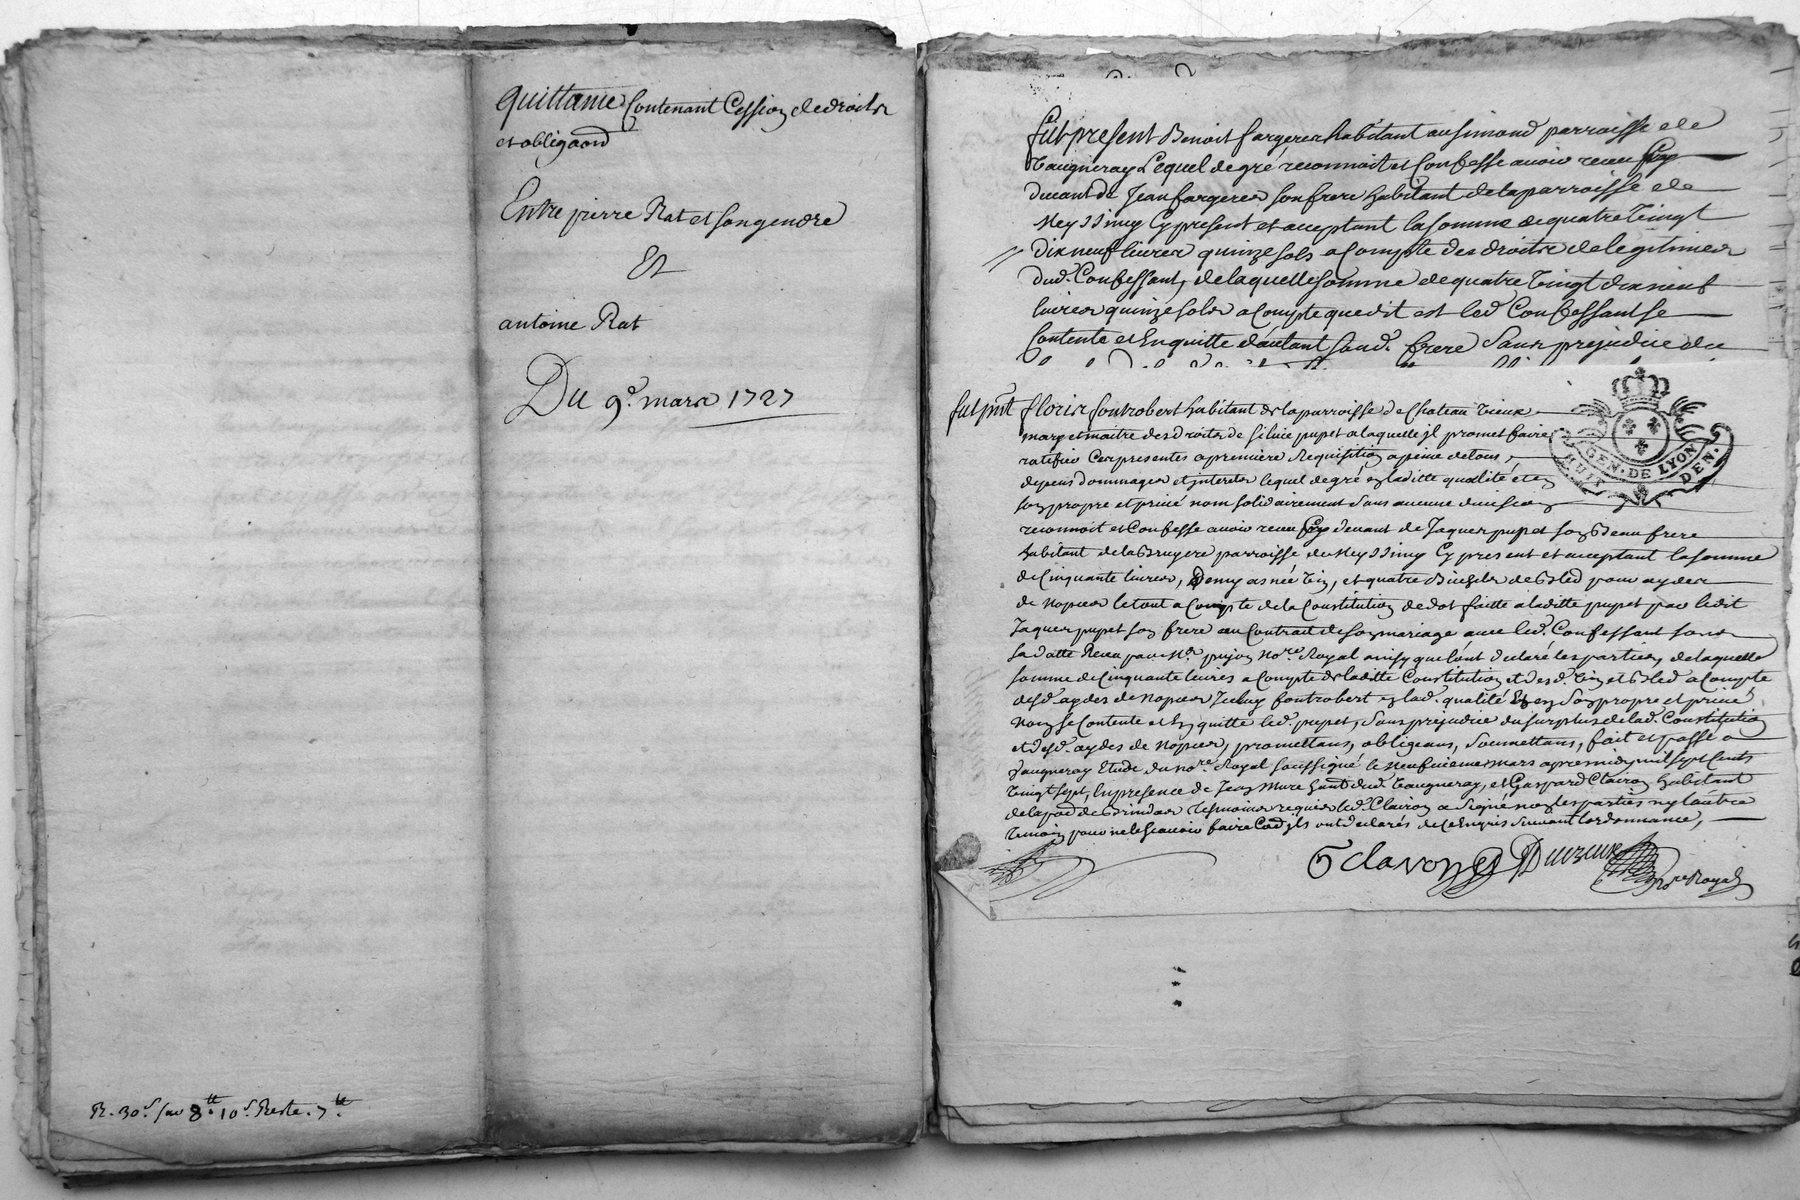 quittance Contenant Cession de droits
et obligaõn
Entre pierre Rat et son gendre
Et
antoine Rat
Du 9e. mars 1727
R. 30s. sur 8tt. 10s. Reste. 7tt.
fut present Benoit fargeres habitant au simond parroisse de
Vaugneray Lequel de gré reconnoit et Confesse avoir receu Cy
devant de Jean fargeres son frere habitant de la parroisse de
Meyssimy Cy present et acceptant la somme de quatre Vingt
dix neuf livres quinze sols a Compte des droits de legitimes
dud. Confessant, de laquelle somme de quatre Vingt dix neuf
livres quinze sols a Compte que dit est led. Confessant se
Contente et En quitte d'autant sond. frere Sans prejudice du
fut pnt floris fontrobert habitant de la parroisse de Chateau vieux
mary et maitre des droits de silvie pupet a laquelle jl promet faire
ratifier Ces presentes a premiere Requisition a peine de tous
depens dommages et jnterets lequel de gré en laditte qualité et en
son propre et privé nom solidairement sans aucune division
reconnoit et Confesse avoir receu Cy devant de Jaques pupet son Beau frere
habitant de la Bruyere parroisse de Meyssimy Cy present et acceptant la somme
de Cinquante livres, Demy asnée vin, et quatre Bichets de Bled pour aydes
de nopces le tout a Compte de la Constitution de dot faitte a laditte pupet par ledit
Jaques pupet son frere au Contrat de son mariage avec led. Confessant sous
sa datte Receu par Mr. pujon Nore. Royal ainsy que l'ont declaré les parties, de laquelle
somme de Cinquante livres a Compte de laditte Constitution et desd. vin et Bled a Compte
desd. aydes de nopces Jceluy fontrobert en lad. qualité Et en son propre et privé
nom se Contente et En quitte led. pupet, Sans prejudice du surplus de lad. Constitution
et desd. aydes de nopces, promettans, obligeans, soumettans, fait et passé a
Vaugneray Etude du nore. Royal soussigné le neufvieme mars apres midy mil sept Cents
Vingt sept, En presence de Jean Mure habt. dud. Vaugneray, et Gaspard Clairon habitant
de la pad. de Brindas tesmoins requis led. Clairon a signé non les parties ny l'autre
temoin pour ne le scavoir faire Comme jls ont declarés de Ce Enquis suivant l'ordonnance,
GEN. DE LYON
HUIT DEN.
Nore Royal